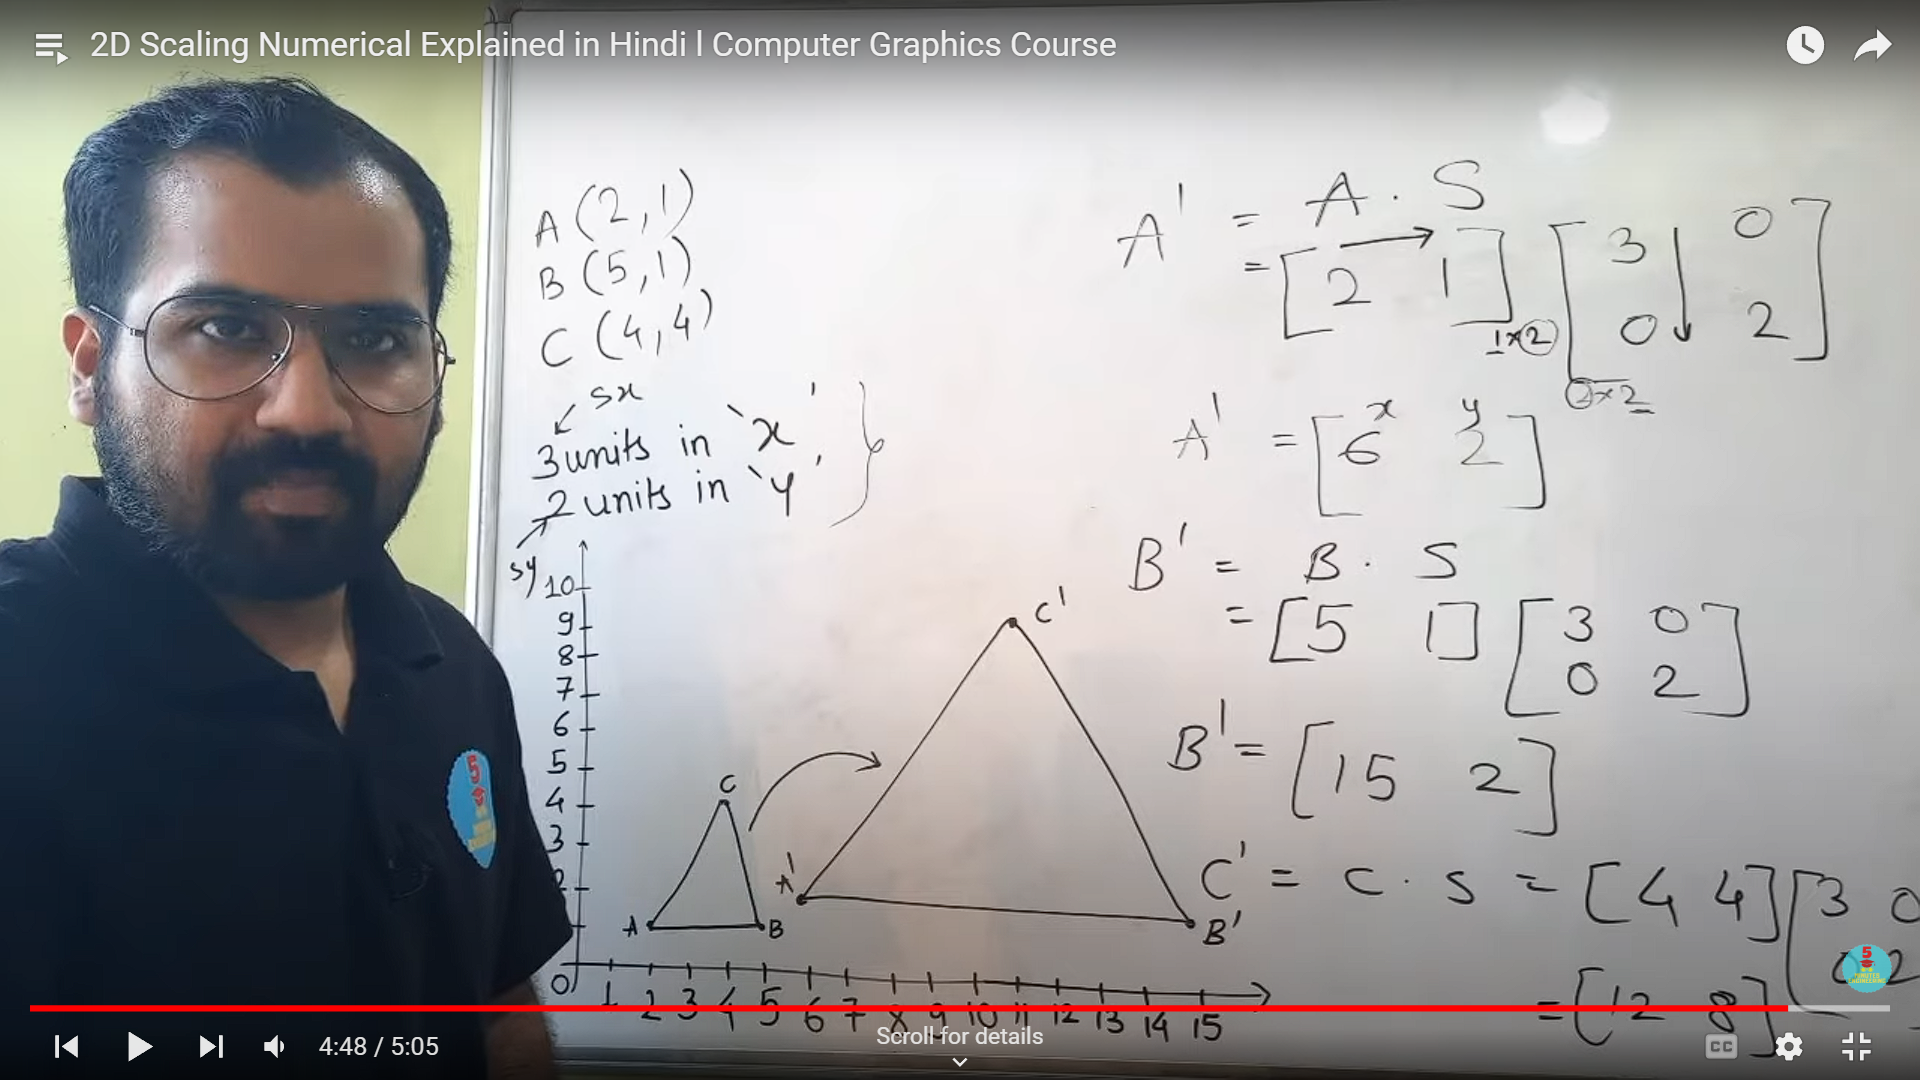 2D Scaling Numerical Explained in Hindi l Computer Graphics Course
A (2,1)
B (5,1)
C (4,4)
sx
3 units in 'x'
2 units in 'y'
sy
10
9
8
7
6
5
4
3
2
0 1 2 3 4 5 6 7 8 9 10 11 12 13 14 15
C
A
B
C'
A'
B'
A' = A . S
= [2 1] 1×2 [3 0
0 2] 2×2
x y
A' = [6 2]
B' = B . S
= [5 1] [3 0
0 2]
B' = [15 2]
C' = C . S = [4 4] [3 0
0 2
= [12 8]
5
5
MINUTES
ENGINEERING
4:48 / 5:05
Scroll for details
CC